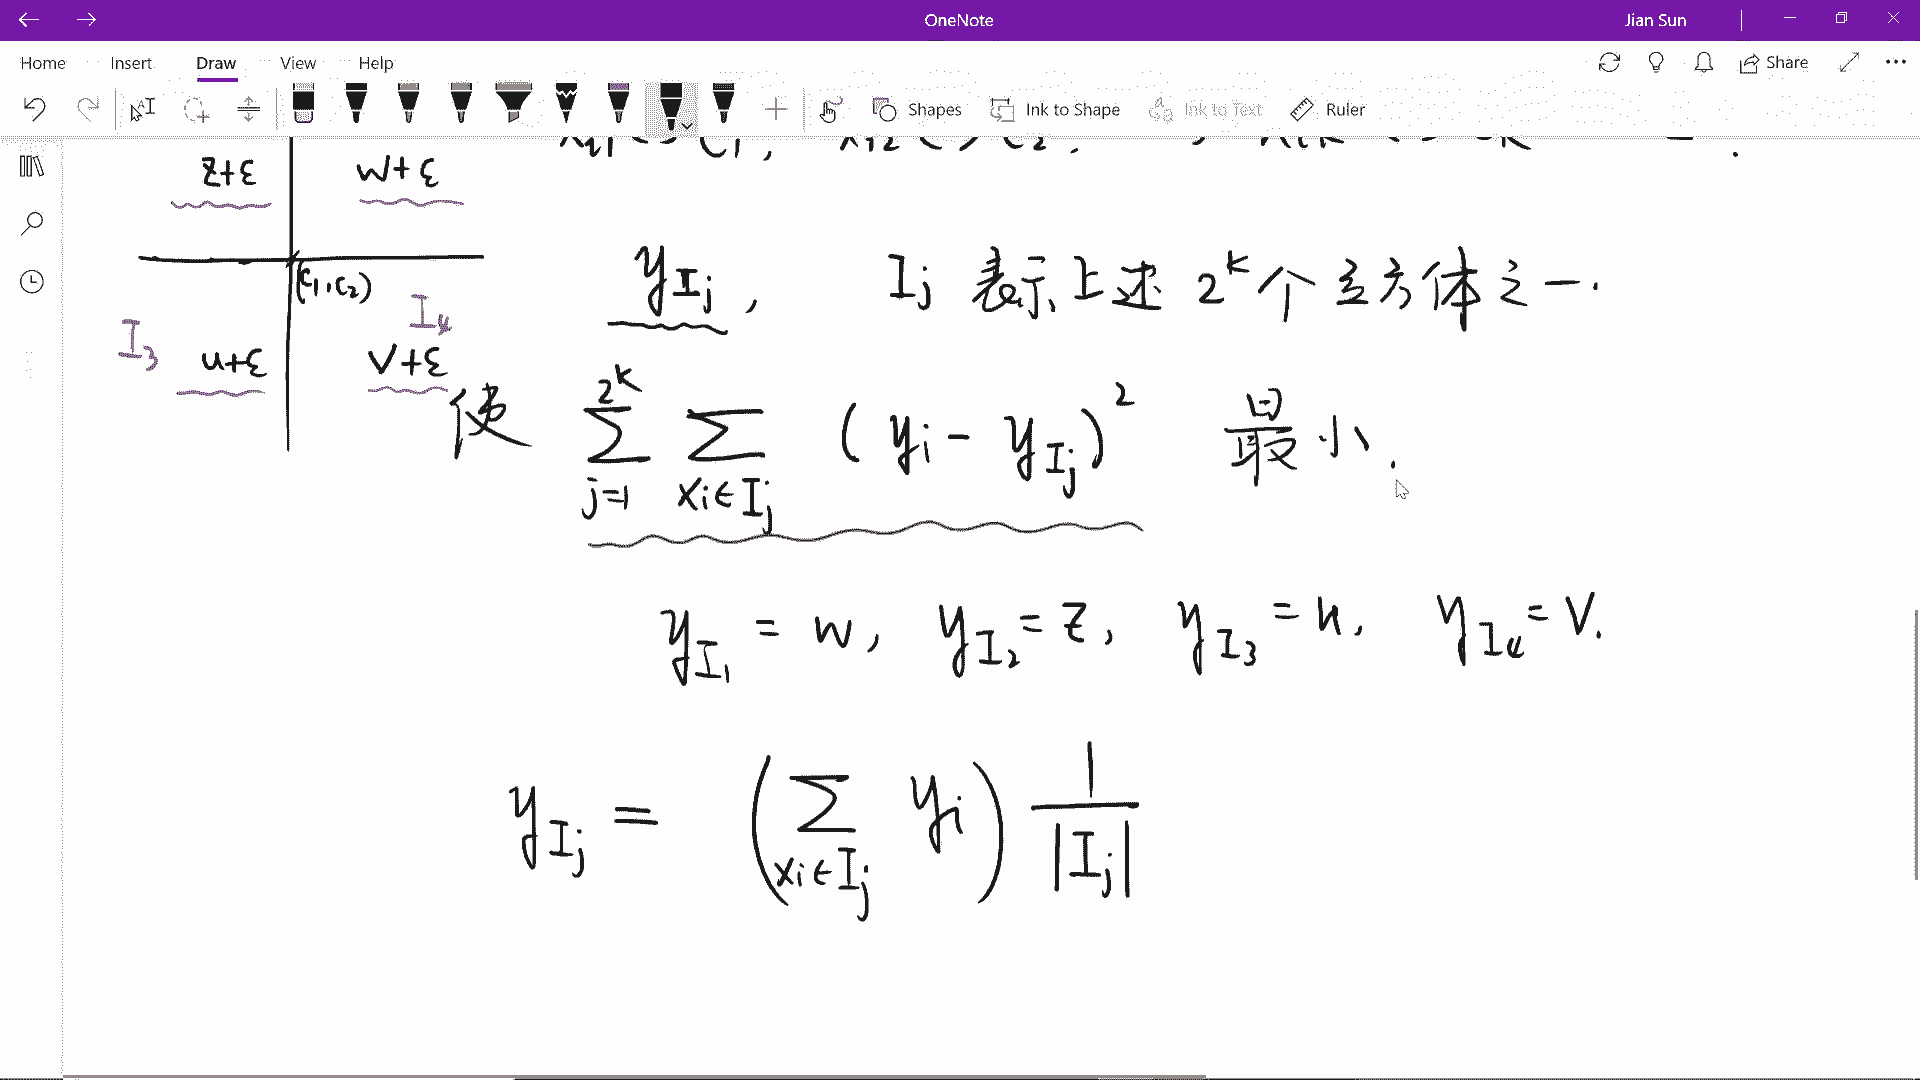 OneNote
Jian Sun
Home Insert Draw View Help
Share
Shapes Ink to Shape Ink to Text Ruler
z+ε w+ε
(c₁,c₂)
I₃ u+ε
I₄ v+ε
y_{I_j}, I_j 表示上述 2^k 个立方体之一.
使 ∑_{j=1}^{2^k} ∑_{x_i∈I_j} (y_i - y_{I_j})^2 最小.
y_{I_1} = w, y_{I_2} = z, y_{I_3} = u, y_{I_4} = v.
y_{I_j} = (∑_{x_i∈I_j} y_i) 1/|I_j|